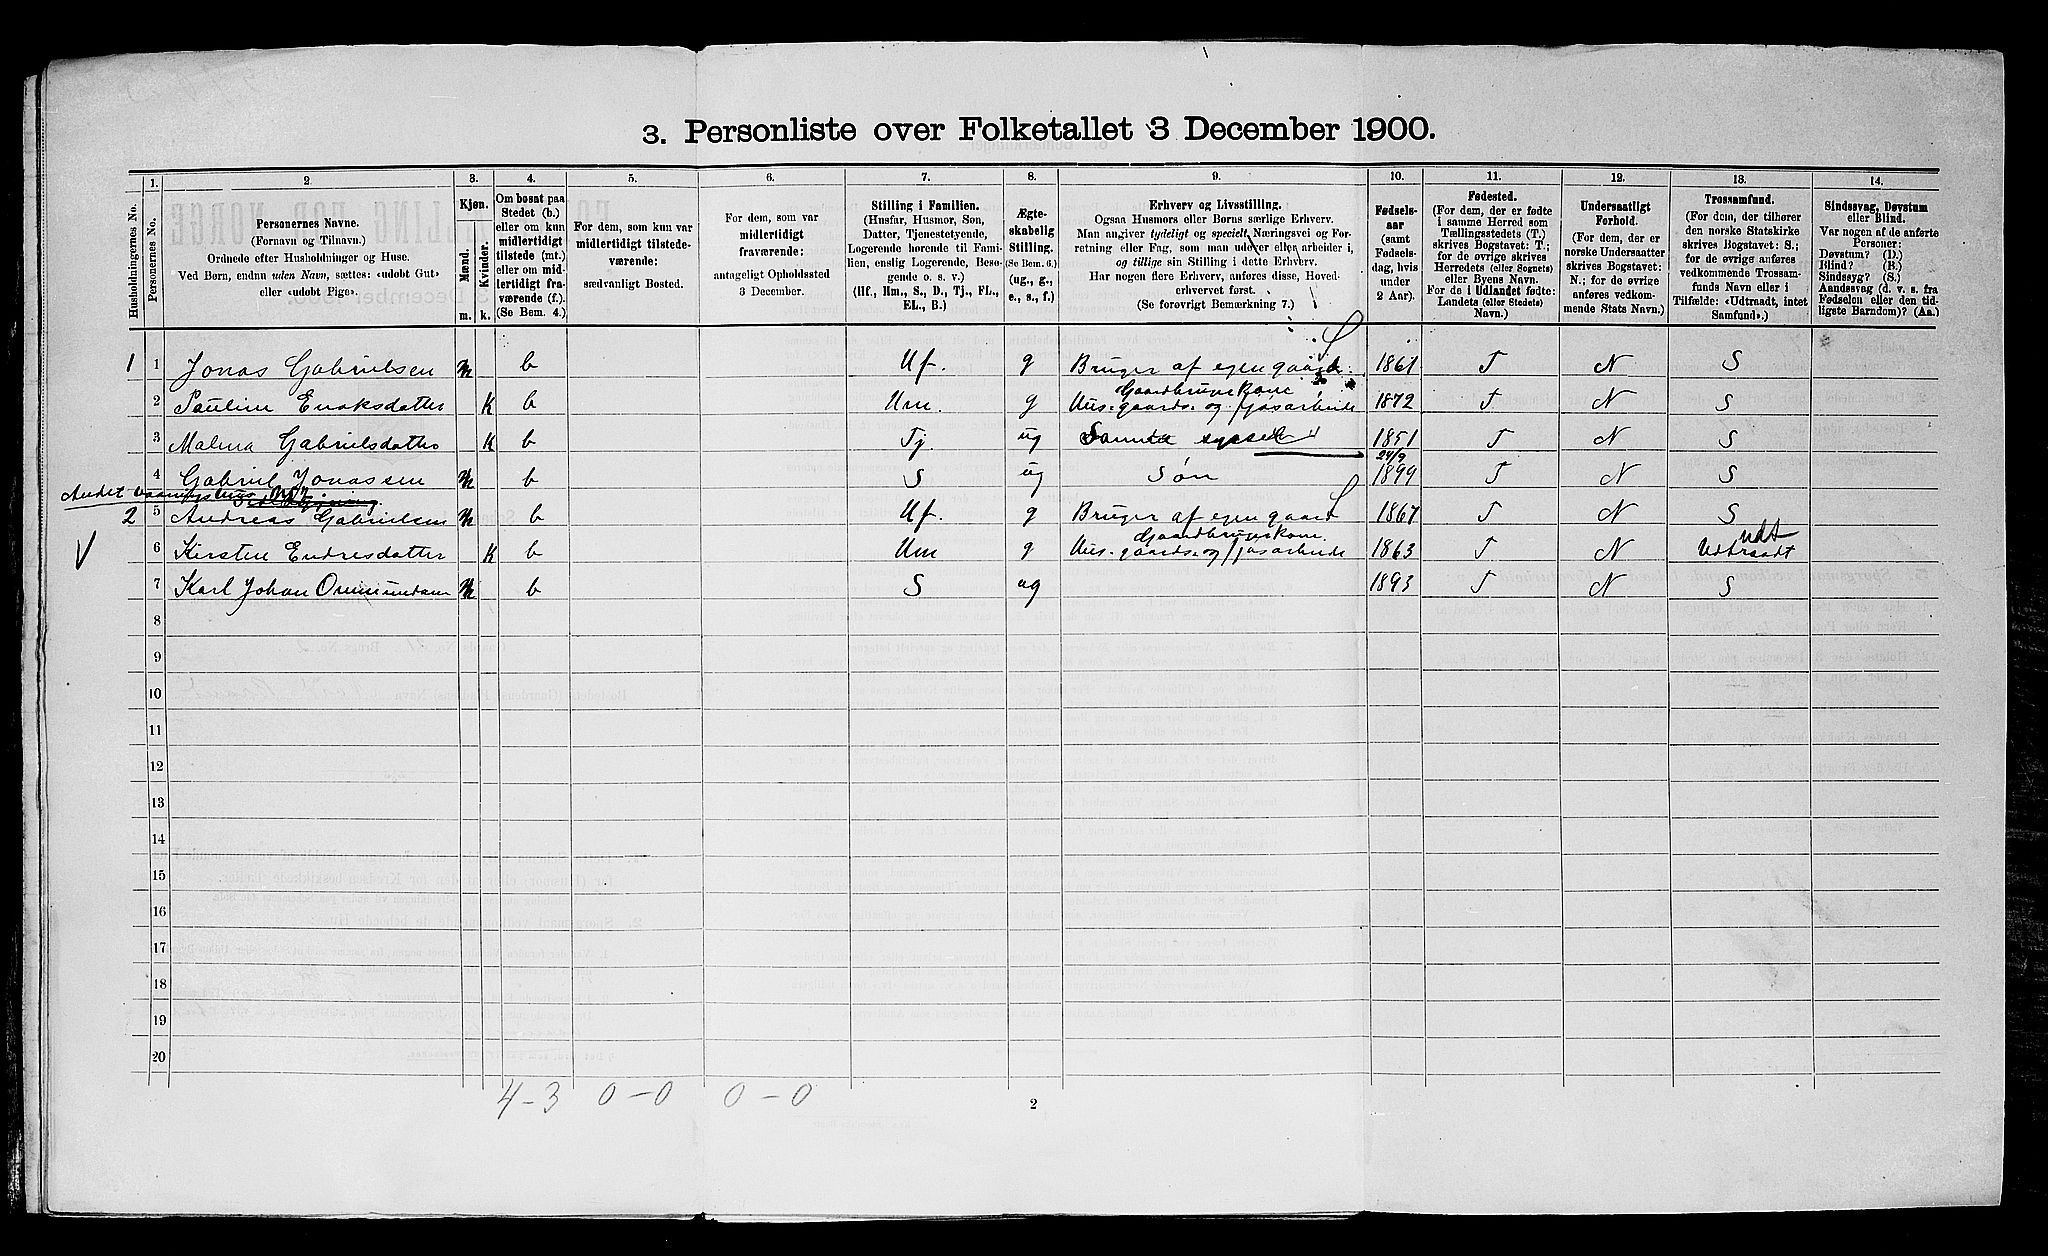 3. Personliste over Folketallet 3 December 1900.
Husholdningernes No.
1. Personernes No.
2.
Personernes Navne.
(Fornavn og Tilnavn.)
Ordnede efter Husholdninger og Huse.
Ved Børn, endnu uden Navn, sættes: «udøbt Gut»
eller «udøbt Pige».
3.
Kjøn.
Mænd. Kvinder.
m. k.
4.
Om bosat paa
Stedet (b.)
eller om kun
midlertidigt
tilstede (mt.)
eller om mid-
lertidigt fra-
værende (f.)
(Se Bem. 4.)
5.
For dem, som kun var
midlertidigt tilstede-
værende:
sædvanligt Bosted.
6.
For dem, som var
midlertidigt
fraværende:
antageligt Opholdssted
3 December.
7.
Stilling i Familien.
(Husfar, Husmor, Søn,
Datter, Tjenestetyende,
Logerende hørende til Fami-
lien, enslig Logerende, Besø-
gende o. s. v.)
(Hf., Hm., S., D., Tj., FL.,
EL., B.)
8.
Ægte-
skabelig
Stilling.
(Se Bem. 6.)
(ug., g.,
e., s., f.)
9.
Erhverv og Livsstilling.
Ogsaa Husmors eller Børns særlige Erhverv.
Man angiver tydeligt og specielt Næringsvei og For-
retning eller Fag, som man udøver eller arbeider i,
og tillige sin Stilling i dette Erhverv.
Har nogen flere Erhverv, anføres disse, Hoved-
erhvervet først.
(Se forøvrigt Bemærkning 7.)
10.
Fødsels-
aar
(samt
Fødsels-
dag, hvis
under
2 Aar).
11.
Fødested.
(For dem, der er fødte
i samme Herred som
Tællingsstedets (T.)
skrives Bogstavet: T.;
for de øvrige skrives
Herredets (eller Sognets)
eller Byens Navn.
For de i Udlandet fødte:
Landets (eller Stedets)
Navn.)
12.
Undersaatligt
Forhold.
(For dem, der er
norske Undersaatter
skrives Bogstavet:
N.; for de øvrige
anføres vedkom-
mende Stats Navn.)
13.
Trossamfund.
(For dem, der tilhører
den norske Statskirke
skrives Bogstavet: S.;
for de øvrige anføres
vedkommende Trossam-
funds Navn eller i
Tilfælde: «Udtraadt, intet
Samfund».)
14.
Sindssvag, Døvstum
eller Blind.
Var nogen af de anførte
Personer:
Døvstum? (D.)
Blind? (B.)
Sindssyg? (S.)
Aandssvag (d. v. s. fra
Fødselen eller den tid-
ligste Barndom)? (Aa.)
1 1 Jonas Gabrielsen m b Hf. g Bruger af egen gaard. 1861 T N S
Gaardbrugerkone
2 Pauline Enoksdatter k b Hm. g Hus-gaards- og fjøsarbeide 1872 T N S
3 Malena Gabrielsdatter k b Tj. ug Samme syssel 1851 T N S
24/9
4 Gabriel Jonassen m b S ug Søn 1899 T N S
Andet vaaningshus
2 5 Andreas Gabrielsen m b Hf. g Bruger af egen gaard 1867 T N S
Gaardbrugerkone. udt
V 6 Kirsten Endresdatter k b Hm g Hus-gaards-og fjøsarbeide 1863 T N Udtraadt
7 Karl Johan Ommundsen m b S ug 1893 T N S
8
9
10
11
12
13
14
15
16
17
18
19
20
4-3 0-0 0-0
2